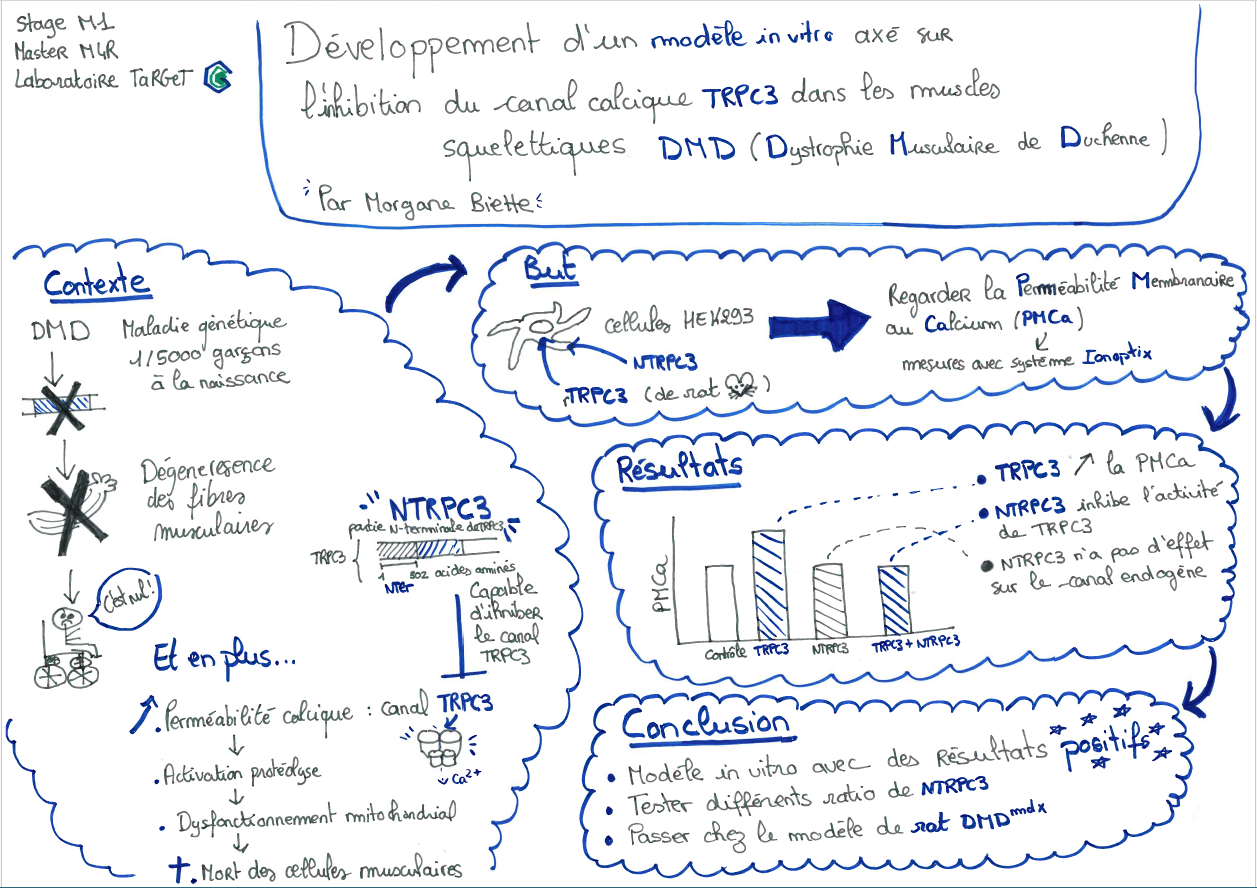 Stage M1
Master M4R
Laboratoire TaRGeT
Développement d'un modèle in vitro axé sur
l'inhibition du canal calcique TRPC3 dans les muscles
squelettiques DMD (Dystrophie Musculaire de Duchenne)
Par Morgane Biette
Contexte
DMD
Maladie génétique
1/5000 garçons
à la naissance
Dégéneresence
des fibres
musculaires
C'est nul!
NTRPC3
partie N-terminale de TRPC3
TRPC3
1 302 acides aminés
Nter
Capable
d'ihniber
le canal
TRPC3
Et en plus...
Perméabilité calcique : canal TRPC3
Ca2+
. Activation protéolyse
. Dysfonctionnement mitochondrial
. Mort des cellules musculaires
But
cellules HEK293
NTRPC3
TRPC3 (de rat )
Regarder la Perméabilité Membranaire
au Calcium (PMCa)
mesures avec système Ionoptix
Résultats
PMCa
Contrôle TRPC3 NTRPC3 TRPC3 + NTRPC3
• TRPC3 ↗ la PMCa
• NTRPC3 inhibe l'activité
de TRPC3
• NTRPC3 n'a pas d'effet
sur le canal endogène
Conclusion
• Modèle in vitro avec des Résultats positifs
• Tester différents ratio de NTRPC3
• Passer chez le modèle de rat DMDmdx